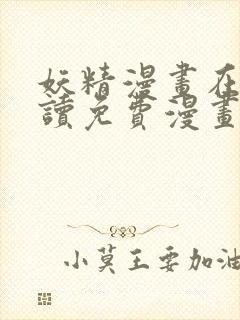 妖精漫畫在
讀免費漫畫
小莫王要加油